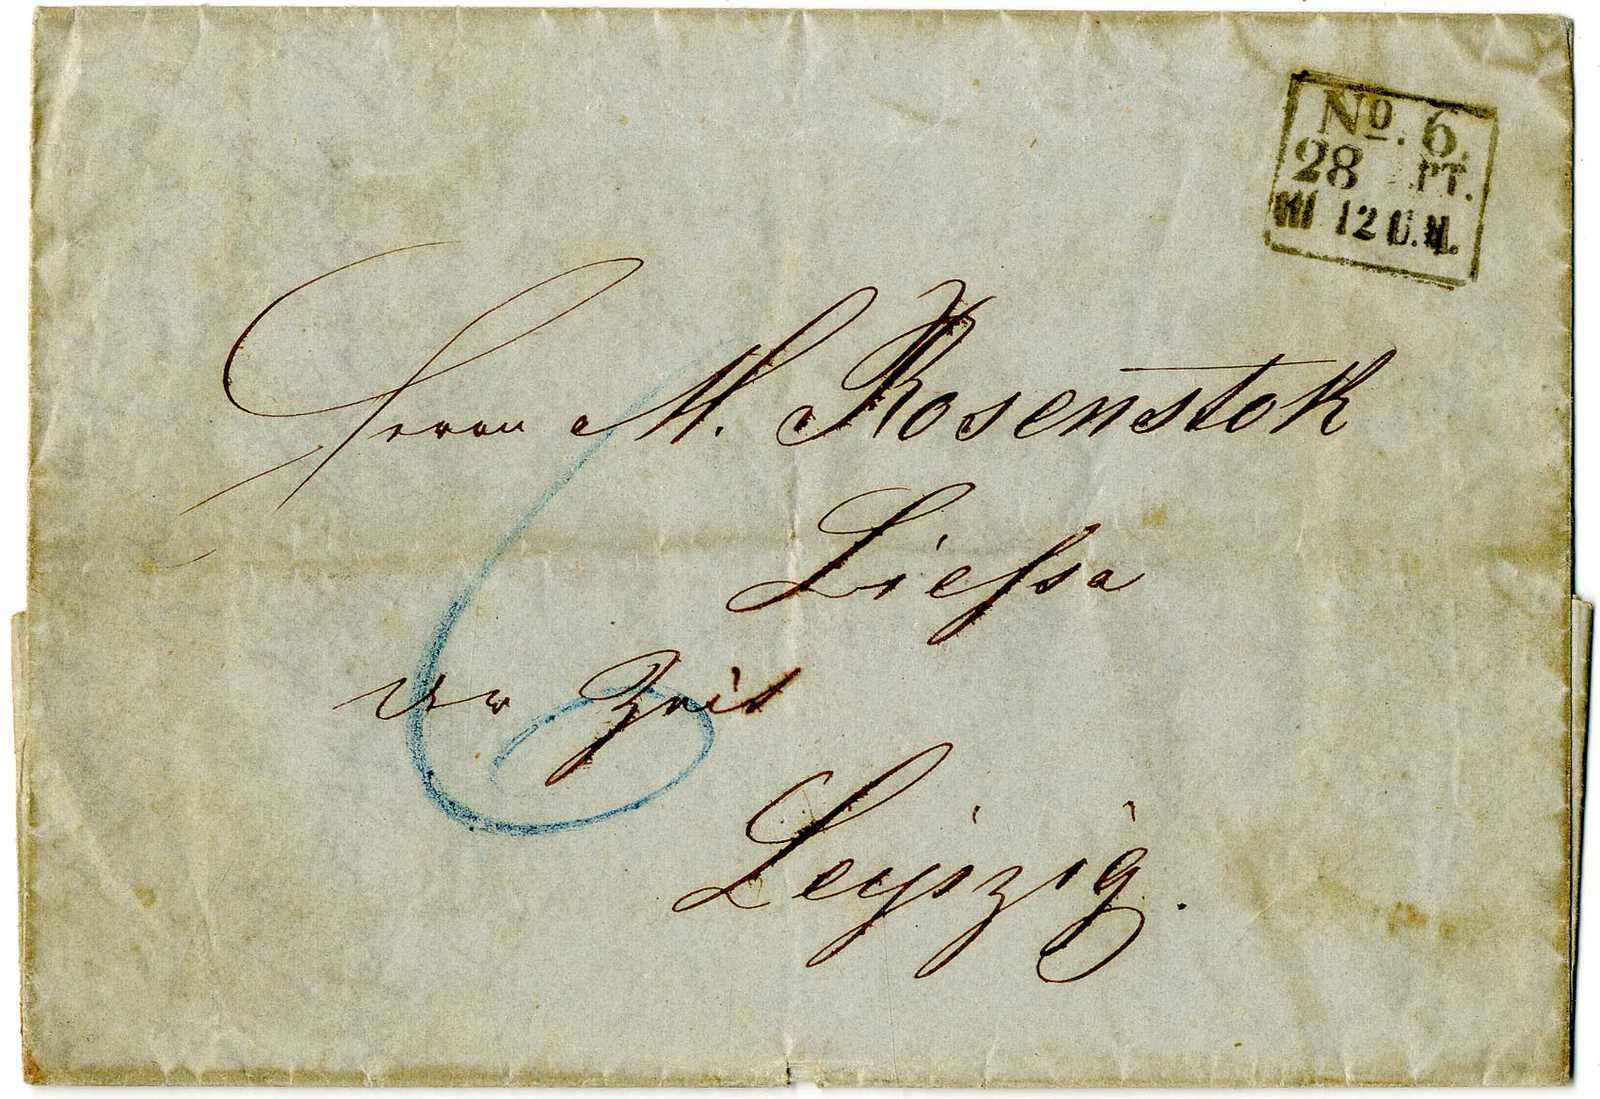 No. 6.
28 PT.
12 U. M.
Herrn M. Rosenstok
Liessa
der Zeit
Leipzig.
6